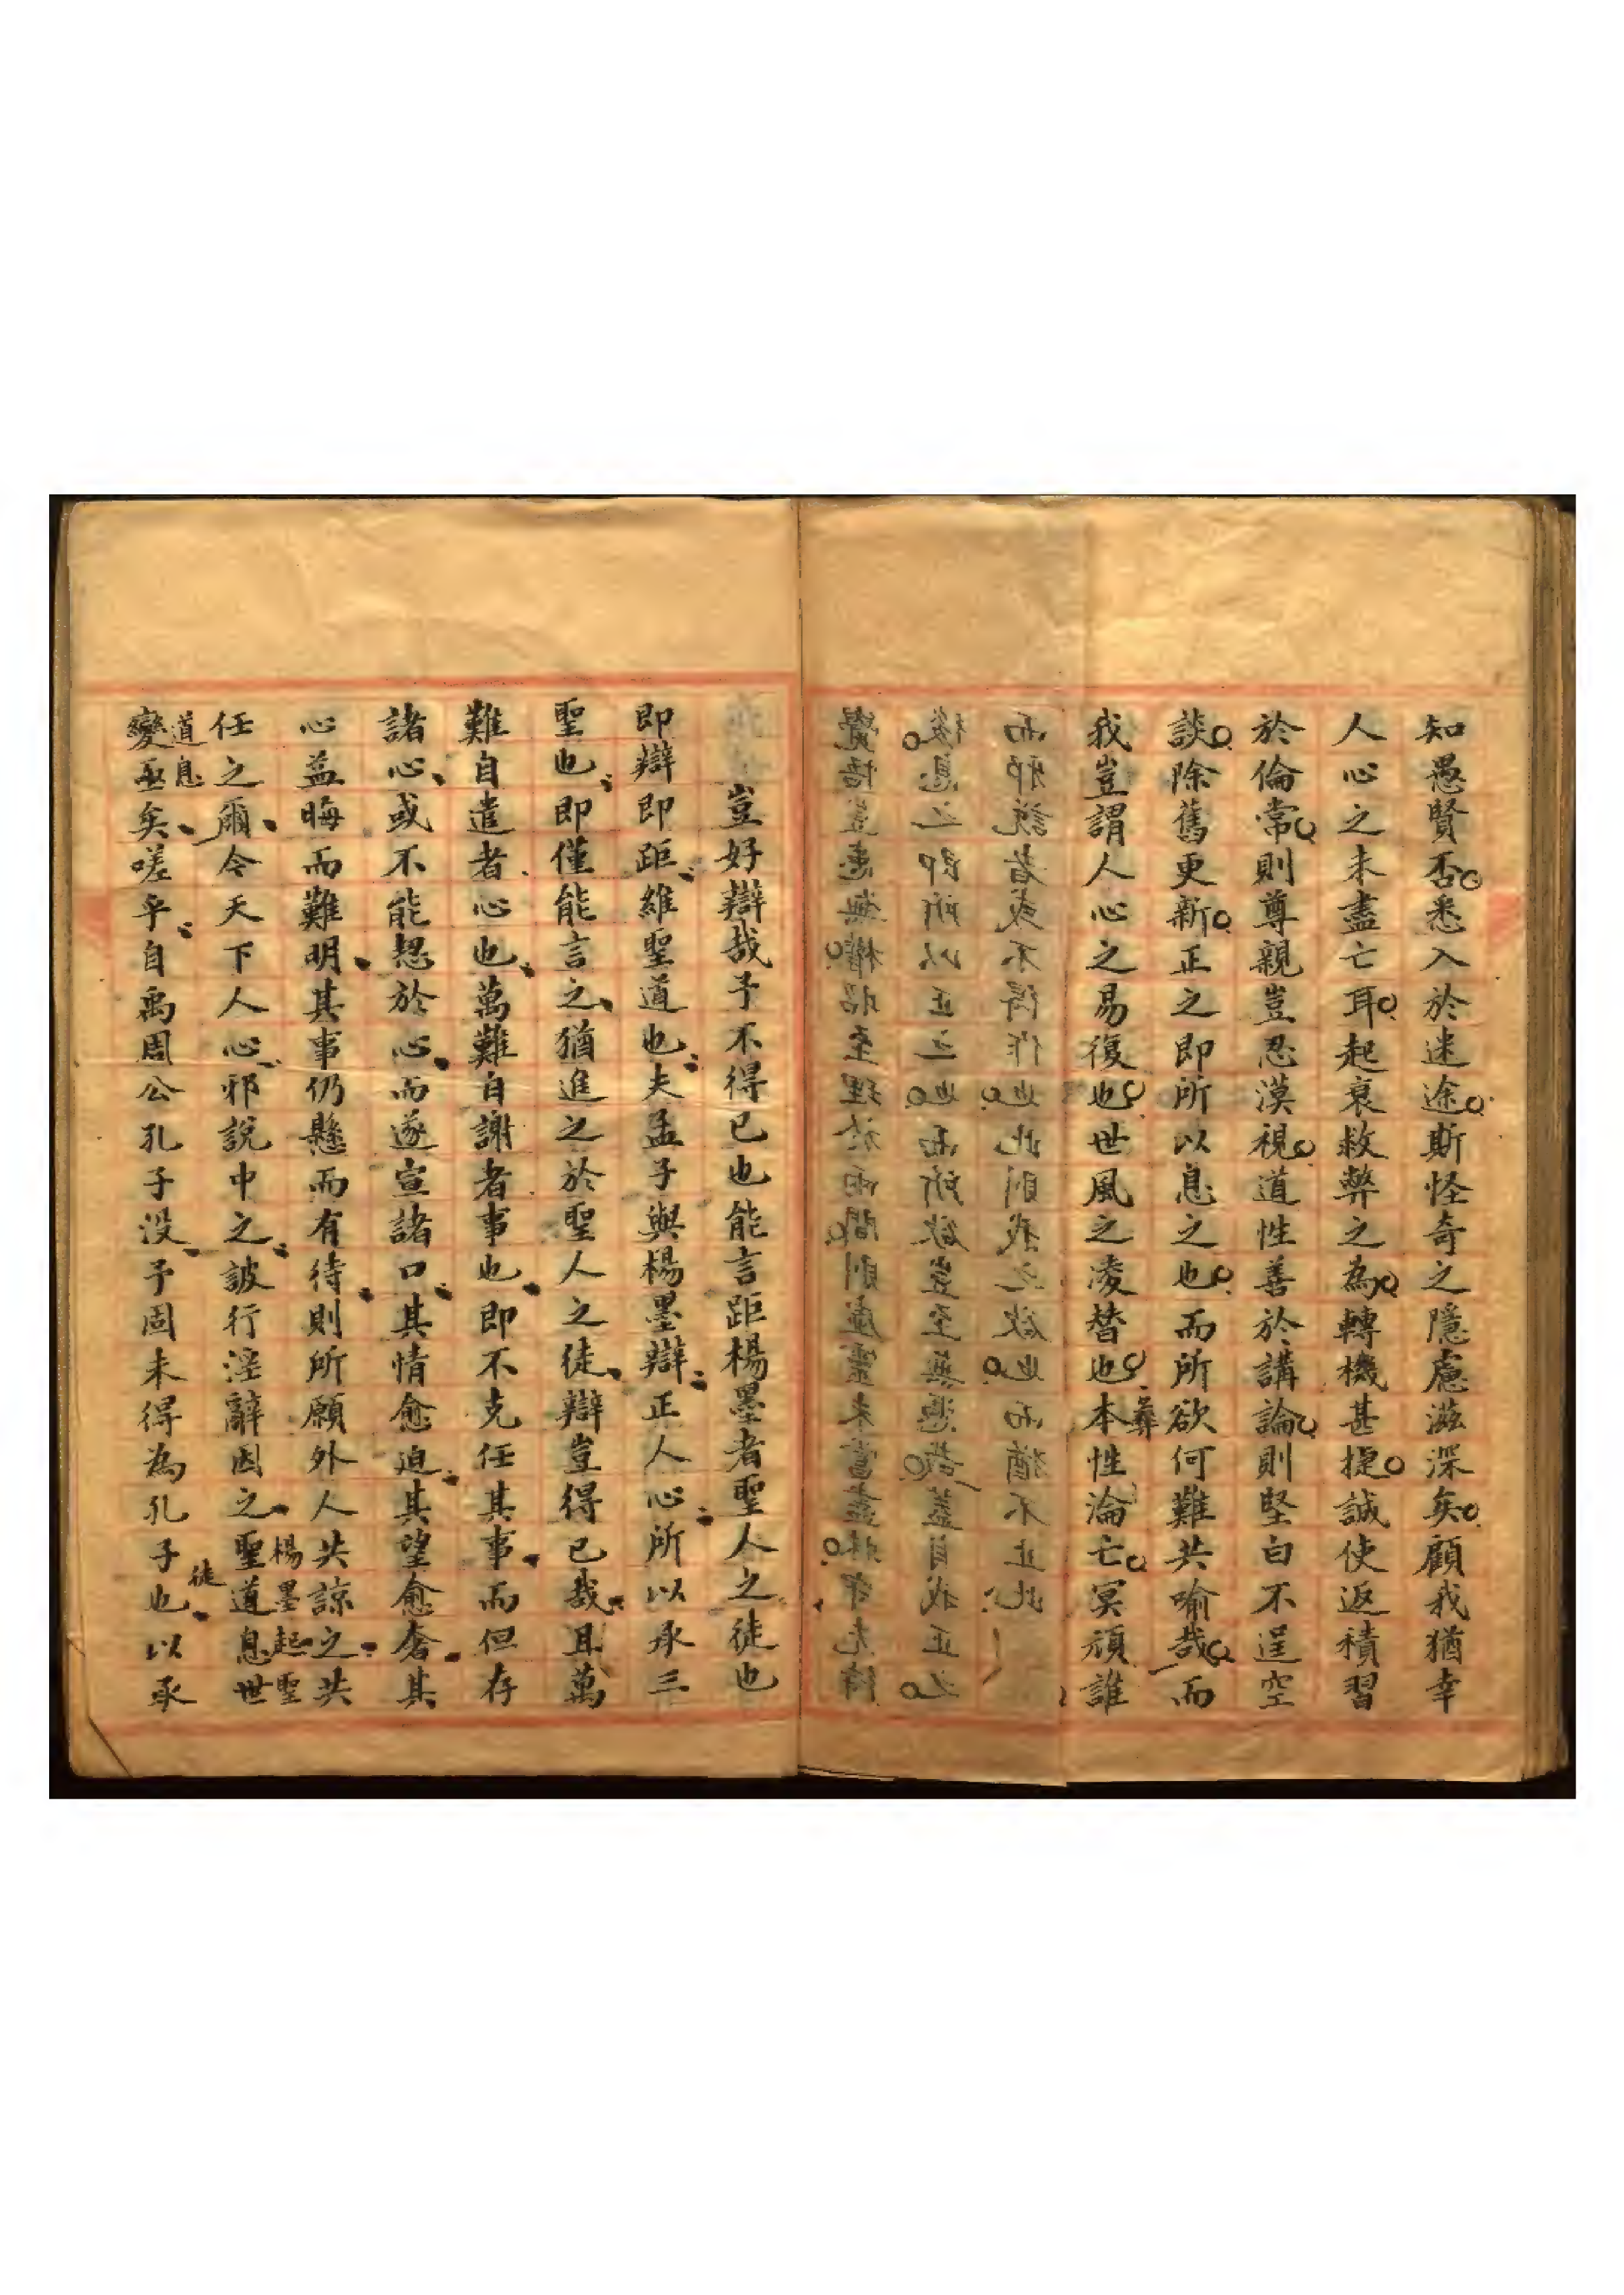 知愚賢否悉入於迷途斯怪奇之隱慮滋深矣顧我猶幸
人心之未盡亡耳起衰救弊之為轉機甚捷誠使返積習
於倫常則尊親豈忍漠視道性善於講論則堅白不逞空
談除舊更新正之即所以息之也而所欲何難共喻哉而
我豈謂人心之易復也世風之凌替也本彝性淪亡冥頑誰
而邪說者或不得作也此則我之欲也而猶不止此
後息之即所以正之也而所欲豈至無憑哉蓋自我正之
覺悟豈患無權昭至理於兩間則虛靈未嘗盡
豈好辯哉予不得已也能言距楊墨者聖人之徒也
即辯即距維聖道也夫孟子與楊墨辯正人心所以承三
聖也即僅能言之猶進之於聖人之徒辯豈得已哉且萬
難自遣者心也萬難自謝者事也即不克任其事而但存
諸心或不能恝於心而遂宣諸口其情愈迫其望愈奢其
心益晦而難明其事仍懸而有待則所願外人共諒之共
任之爾今天下人心邪說中之詖行淫辭因之楊墨起聖聖道息世
道息變亟矣嗟乎自禹周公孔子沒予固未得為孔子徒也以承